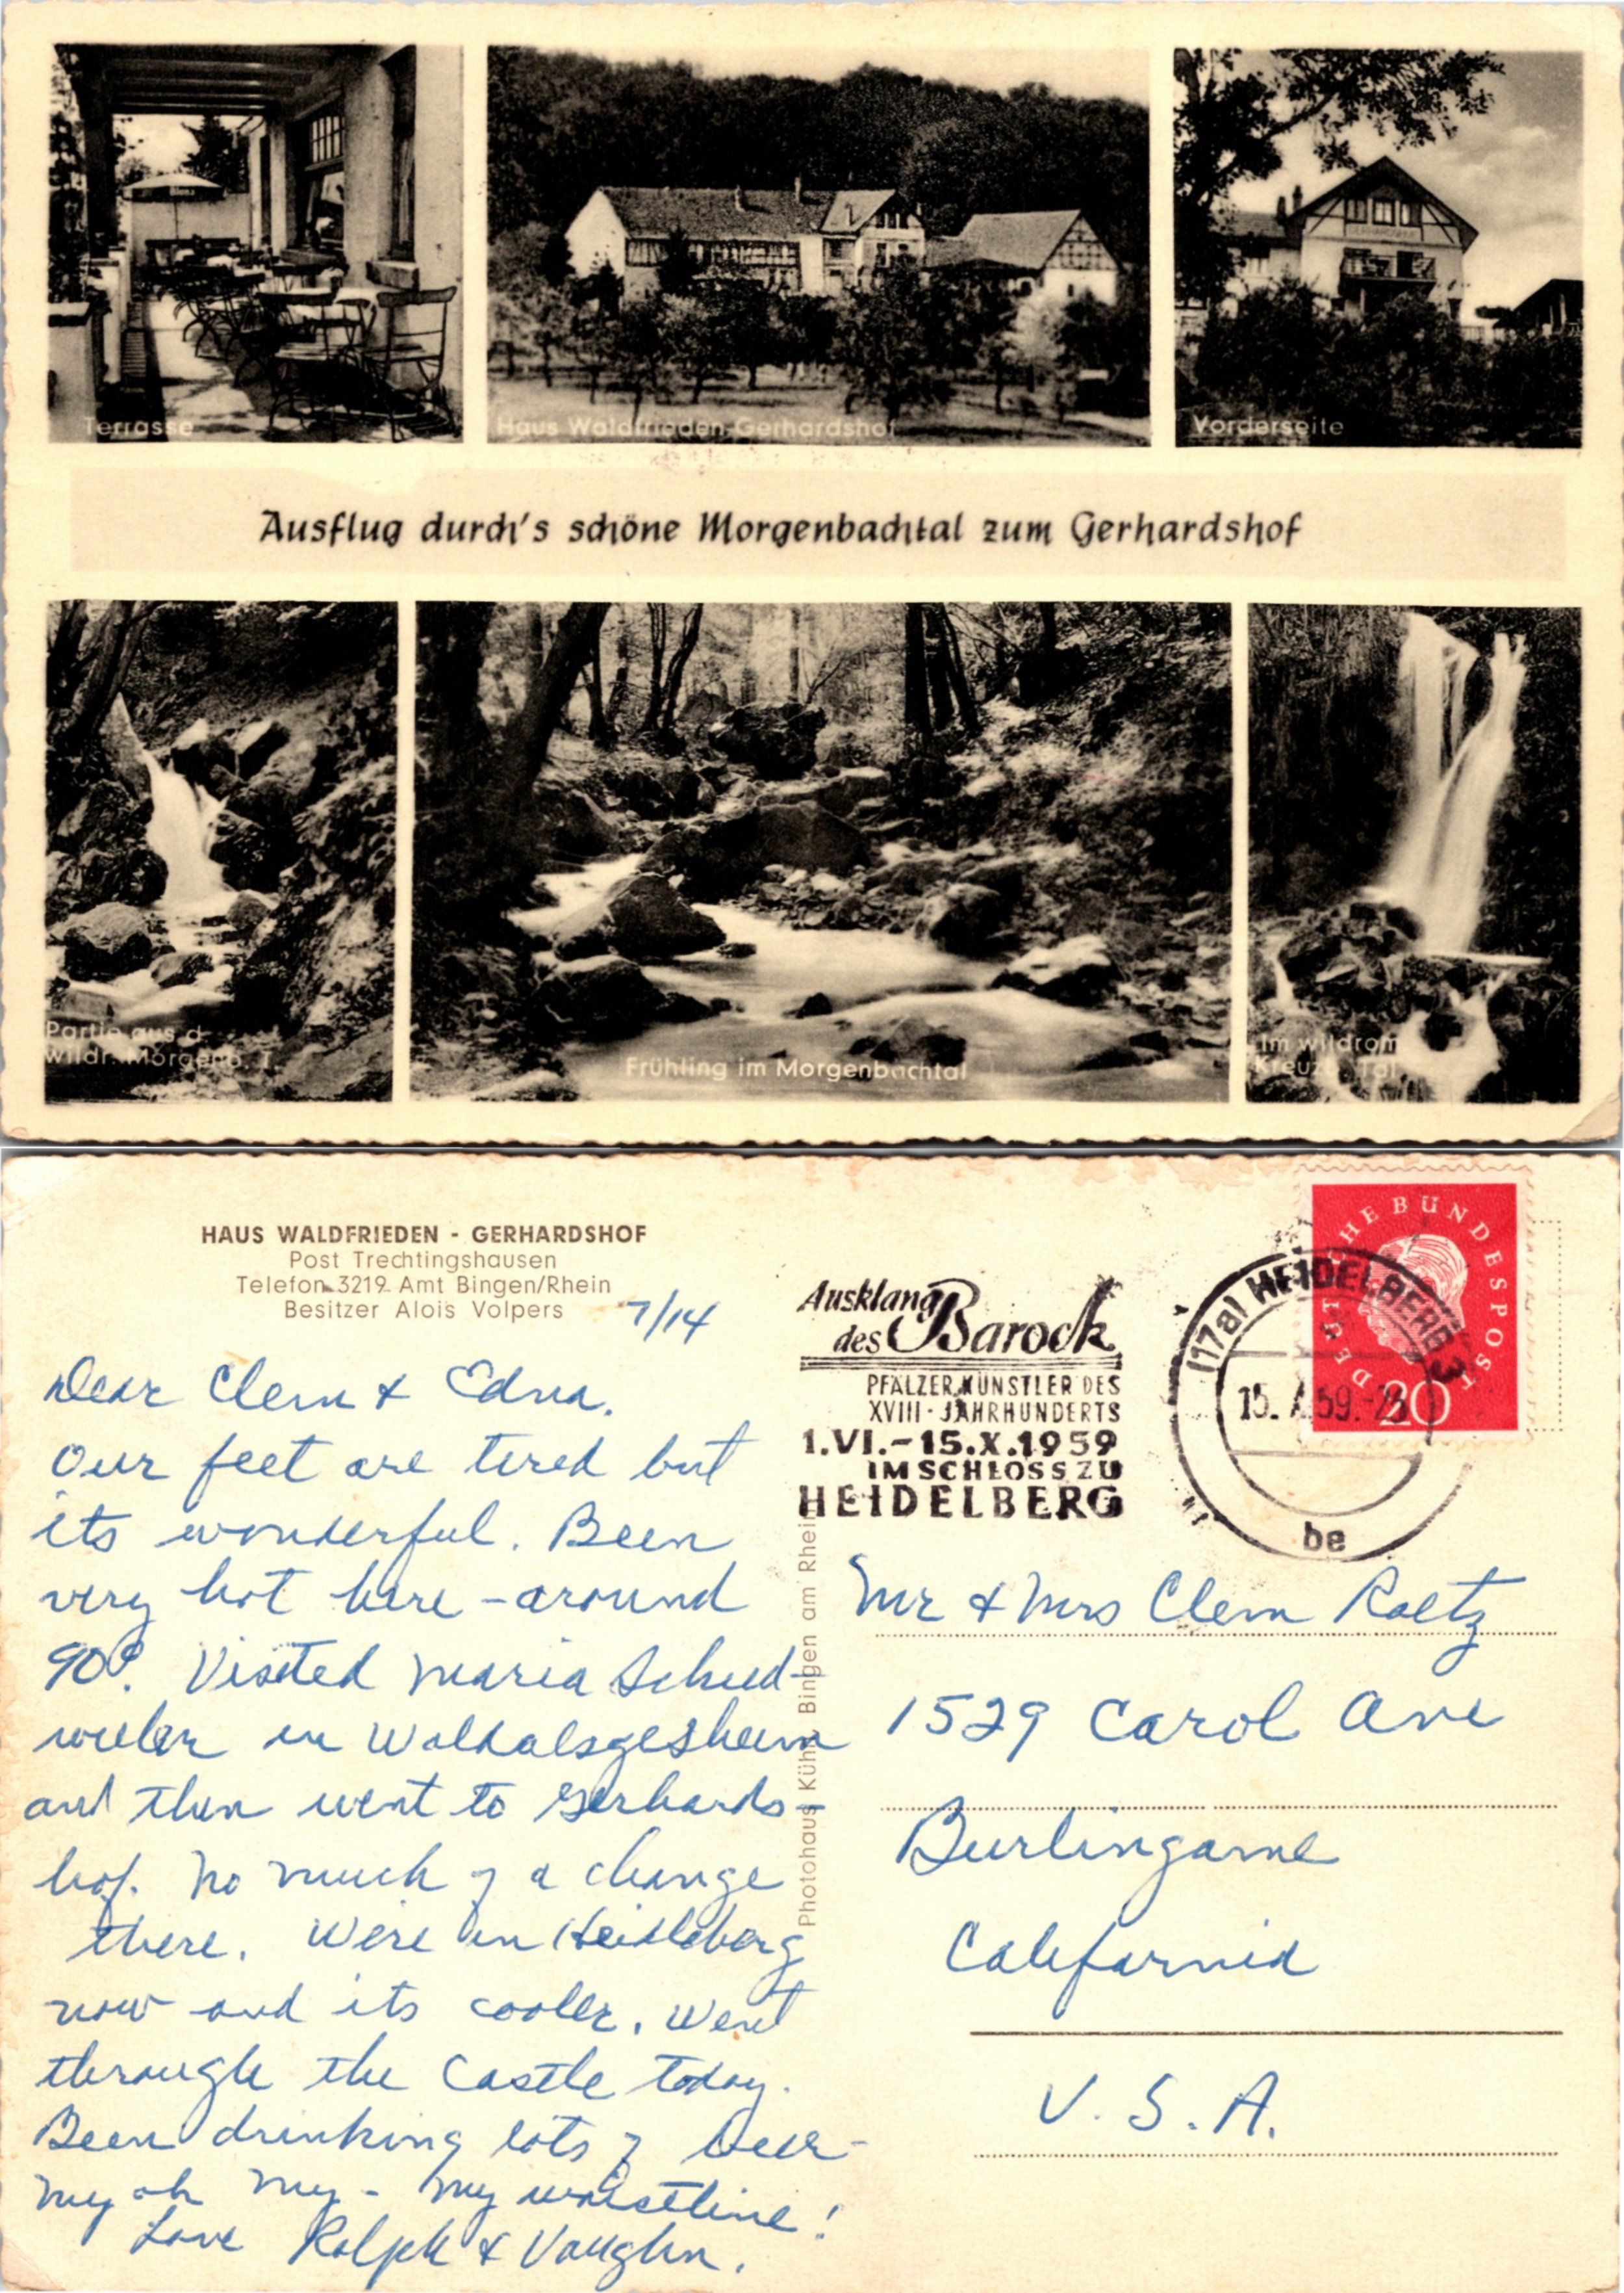 Terrasse
Haus Waldfrieden-Gerhardshof
Vorderseite
Ausflug durch's schöne Morgenbachtal zum Gerhardshof
Partie aus d.
wildr. Morgenb. T.
Frühling im Morgenbachtal
Im wildrom.
Kreuzb. Tal
HAUS WALDFRIEDEN - GERHARDSHOF
Post Trechtingshausen
Telefon 3219 Amt Bingen/Rhein
Besitzer Alois Volpers
7/14
Dear Clem & Edna.
Our feet are tired but
its wonderful. Been
very hot here - around
90°. Visited Maria Schud-
wieler in Waldalsgesheim
and then went to Gerhards-
hof. No much of a change
there. Were in Heidleberg
now and its cooler. Went
through the Castle today.
Been drinking lots of beer -
my oh my - my waistline!
Love Ralph & Vaughn.
Photohaus Kühn, Bingen am Rhein
Ausklang
des Barock
PFÄLZER KÜNSTLER DES
XVIII. JAHRHUNDERTS
1.VI.-15.X.1959
IM SCHLOSS ZU
HEIDELBERG
(17a) HEIDELBERG 3
15. 59.-
be
DEUTSCHE BUNDESPOST
20
Mr & Mrs Clem Raetz
1529 Carol Ave
Burlingame
California
U.S.A.